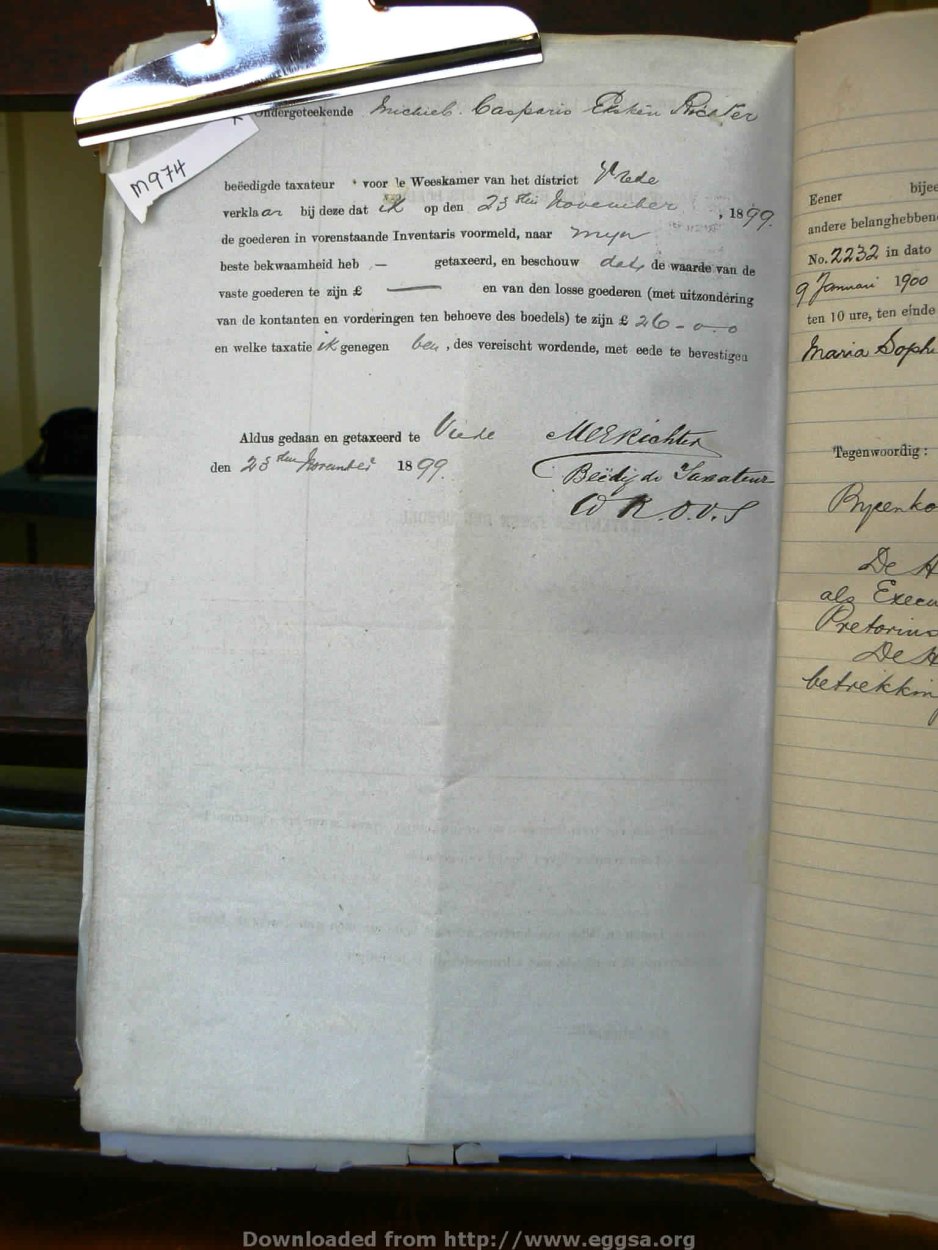 Ondergeteekende Michiel Casparis Richter
m974
beëedigde taxateur voor de Weeskamer van het district Vrede
verklaar bij deze dat ik op den 23sten November , 1899.
de goederen in vorenstaande Inventaris voormeld, naar myn
beste bekwaamheid heb — getaxeerd, en beschouw dat de waarde van de
vaste goederen te zijn £ — en van den losse goederen (met uitzondering
van de kontanten en vorderingen ten behoeve des boedels) te zijn £ 26-0-0
en welke taxatie ik genegen ben , des vereischt wordende, met eede te bevestigen
Aldus gedaan en getaxeerd te Vrede
den 23sten November 1899.
MCERichter
Beëdigde Taxateur
W K. O. V. S
Eener bijee
andere belanghebben
No. 2232 in dato
9 Januari 1900
ten 10 ure, ten einde
Maria Soph
Tegenwoordig :
De H
als Execu
Pretorius
De H
betrekkin
Downloaded from http://www.eggsa.org